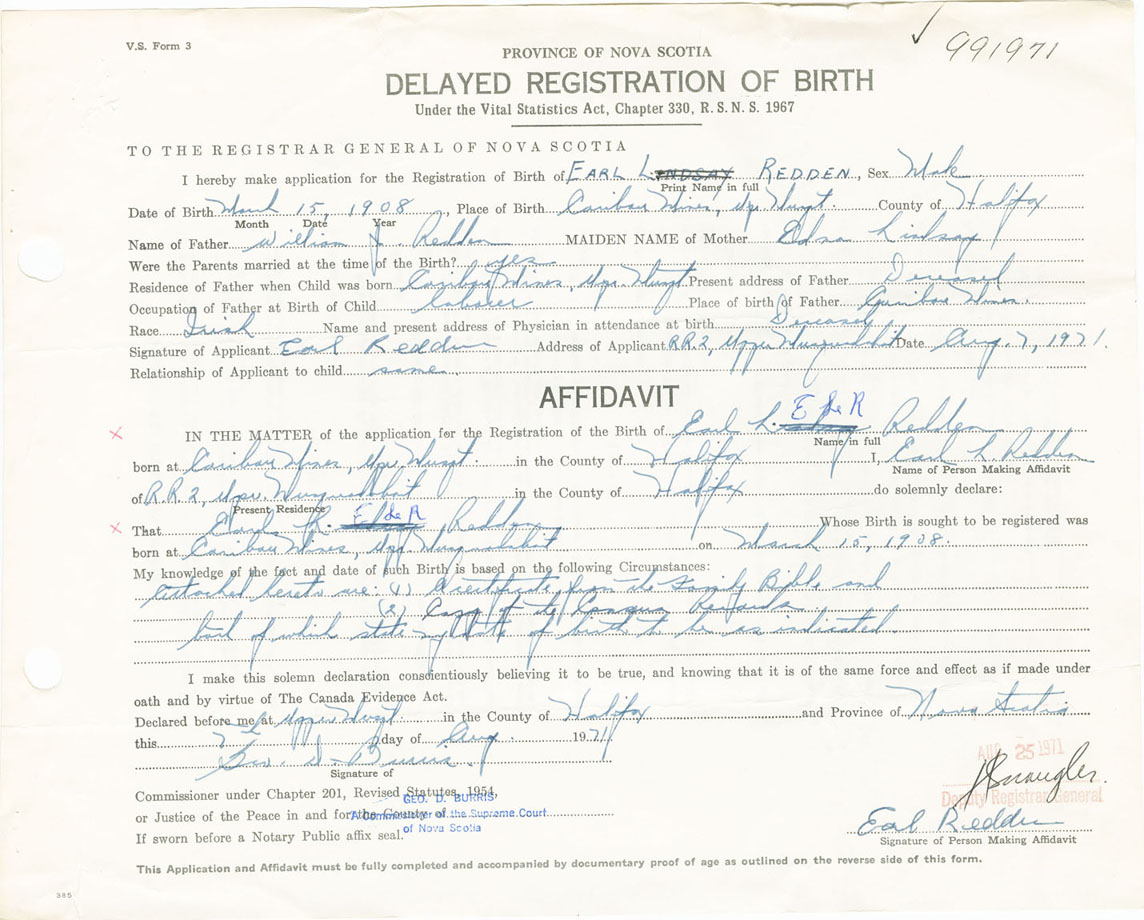 V.S. Form 3
991971
PROVINCE OF NOVA SCOTIA
DELAYED REGISTRATION OF BIRTH
Under the Vital Statistics Act, Chapter 330, R. S. N. S. 1967
TO THE REGISTRAR GENERAL OF NOVA SCOTIA
I hereby make application for the Registration of Birth of EARL LINDSAY REDDEN, Sex Male
Print Name in full
Date of Birth March 15, 1908, Place of Birth Caribou Mines, Upr. Musqt. County of Halifax
Month Date Year
Name of Father William J. Redden MAIDEN NAME of Mother Edna Lindsay
Were the Parents married at the time of the Birth? yes
Residence of Father when Child was born Caribou Mines, Upr. Musqt. Present address of Father Deceased
Occupation of Father at Birth of Child Laborer Place of birth of Father Caribou Mines.
Race Irish Name and present address of Physician in attendance at birth Deceased
Signature of Applicant Earl Redden Address of Applicant R.R. 2, Upper Musquodobit Date Aug. 7, 1971.
Relationship of Applicant to child same
AFFIDAVIT
E de R
x IN THE MATTER of the application for the Registration of the Birth of Earl L. Redden
Name in full
born at Caribou Mines, Upr. Musqt. in the County of Halifax I, Earl L. Redden
Name of Person Making Affidavit
of R.R. 2, Upr. Musquodobit in the County of Halifax do solemnly declare:
Present Residence
E de R
x That Earl L. Redden Whose Birth is sought to be registered was
born at Caribou Mines, Upr. Musquodobit on March 15, 1908.
My knowledge of the fact and date of such Birth is based on the following Circumstances:
Attached hereto are: (1) A certificate from the Family Bible and
(2) Copy of the Census Records
both of which state my date of birth to be as indicated.
I make this solemn declaration conscientiously believing it to be true, and knowing that it is of the same force and effect as if made under
oath and by virtue of The Canada Evidence Act.
Declared before me at Upper Musqt. in the County of Halifax and Province of Nova Scotia
this 7th day of Aug. 1971
Geo. D. Burris.
Signature of
AUG 25 1971
Deputy Registrar General
Commissioner under Chapter 201, Revised Statutes, 1954,
or Justice of the Peace in and for the County of
GEO. D. BURRIS
A Commissioner of the Supreme Court
of Nova Scotia
If sworn before a Notary Public affix seal.
Earl Redden
Signature of Person Making Affidavit
This Application and Affidavit must be fully completed and accompanied by documentary proof of age as outlined on the reverse side of this form.
385